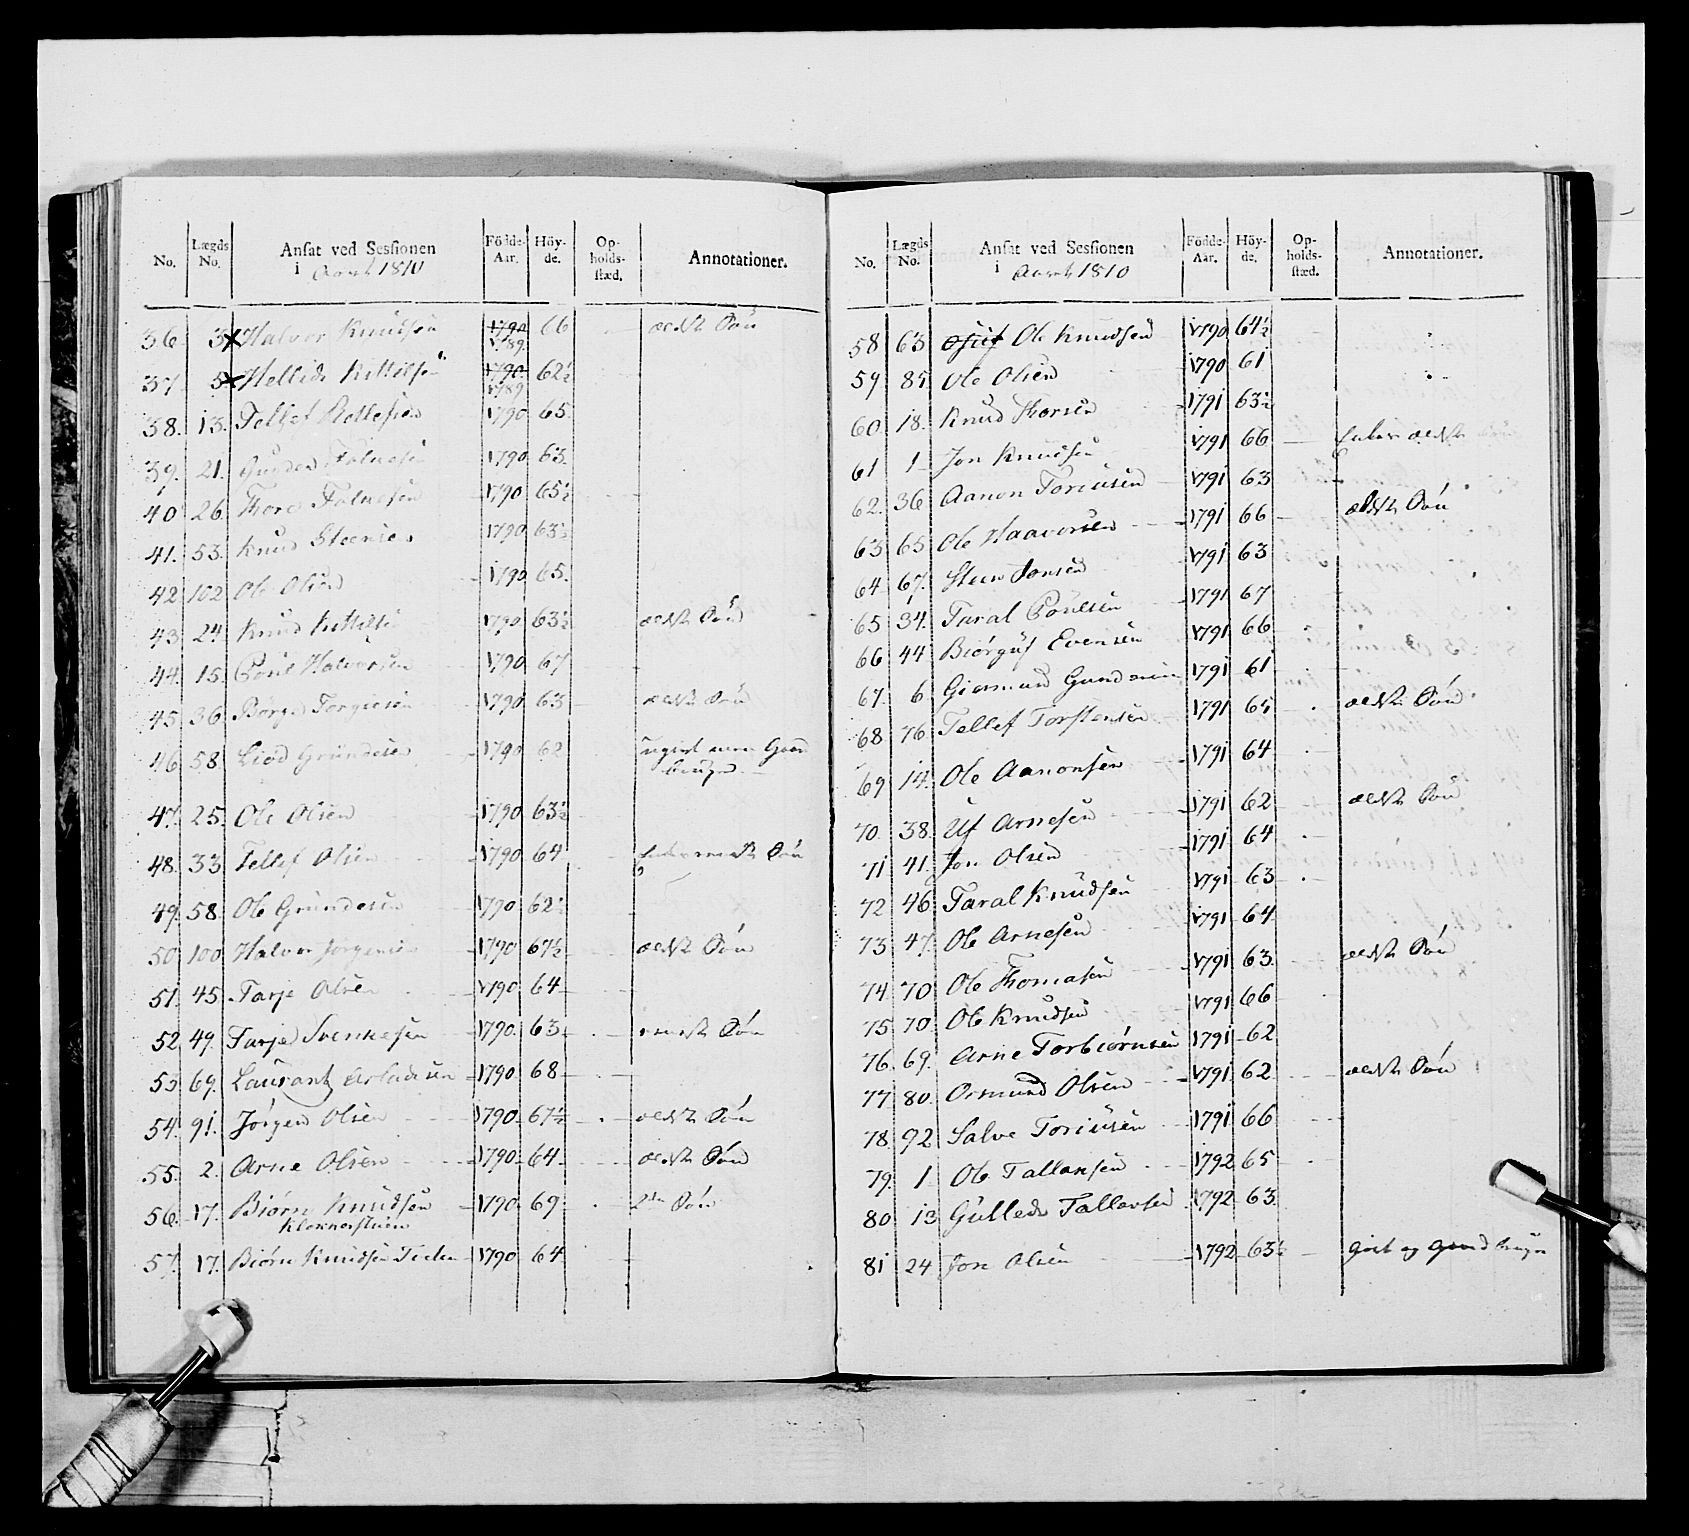 No. Lægds No. Ansat ved Sessionen i Aaret 1810 Födde-Aar. Höy-de. Op-holds-stæd. Annotationer.
36. 3 Halvor Knudsen 1790 1789 66 ældste Søn
37. 5 Kittilsen 1790 1789 62½
38. 13. Tellef 1790 65
39. 21. 1790 63
40 26. Thore 1790 65½
41. 53. Knud Steensen 1790 63½
42 102 Ole Olsen 1790 65.
43 24 Knud Kittilsen 1790 63½ ældste Søn
44. 15. Poul Halvorsen 1790 67
45 36 1790 63 ældste Søn
46 58. Grundesen 1790 62
47. 25. Ole Olsen 1790 63½
48. 33 Tellef Olsen 1790 64 Søn
49. 58. Ole Grundesen 1790 62½
50. 100 Halvor Jørgensen 1790 67½ ældste Søn
51. 45. Tarje Olsen 1790 64
52 49. Tarje Svenkesen 1790. 63 Søn
53 69. Laurantz 1790 68
54. 91. Jørgen Olsen 1790 67½ ældste Søn
55. 2. Arne Olsen 1790 64 ældste Søn
56. 17. Biørn Knudsen 1790 69 2den Søn
57. 17. Biørn Knudsen 1790 64
No. Lægds No. Ansat ved Sessionen i Aaret 1810 Födde-Aar. Höy-de. Op-holds-stæd. Annotationer.
58 63 Ole Knudsen 1790 64½
59 85 Ole Olsen 1790 61
60 18. Knud Thorsen 1791 63½
61 1 Jon Knudsen 1791 66 ældste Søn
62. 36 Aanon Toriusen 1791 63
63 65 Ole Haavorsen 1791 66 ældste Søn
64 67. Steen Jonsen 1791 63
65 34. Taral Poulsen 1791 67
66 44 Biørguf Evensen 1791 66
67. 6 Giermund Gundersen 1791 61
68 76 Tellef Torstensen 1791 65 ældste Søn
69 14. Ole Aanonsen 1791 64
70. 38. Uf Arnesen 1791 62 ældste Søn
71 41. Jon Olsen 1791 64
72 46 Taral Knudsen 1791 63
73 47. Ole Arnesen 1791 64
74 70 Ole Thomasen 1791 63. ældste Søn
75 70 Ole Knudsen 1791 66
76. 69. Arne Torbiørnsen 1791 62
77 80. Ormund Olsen 1791 62 ældste Søn
78. 92 Salve Toriusen 1791 66
79. 1 Ole Tallaksen 1792 65
80 13 Gullede Tallevsen 1792 63
81 24 Jon Olsen 1792 63½ gift og Gaardbruger